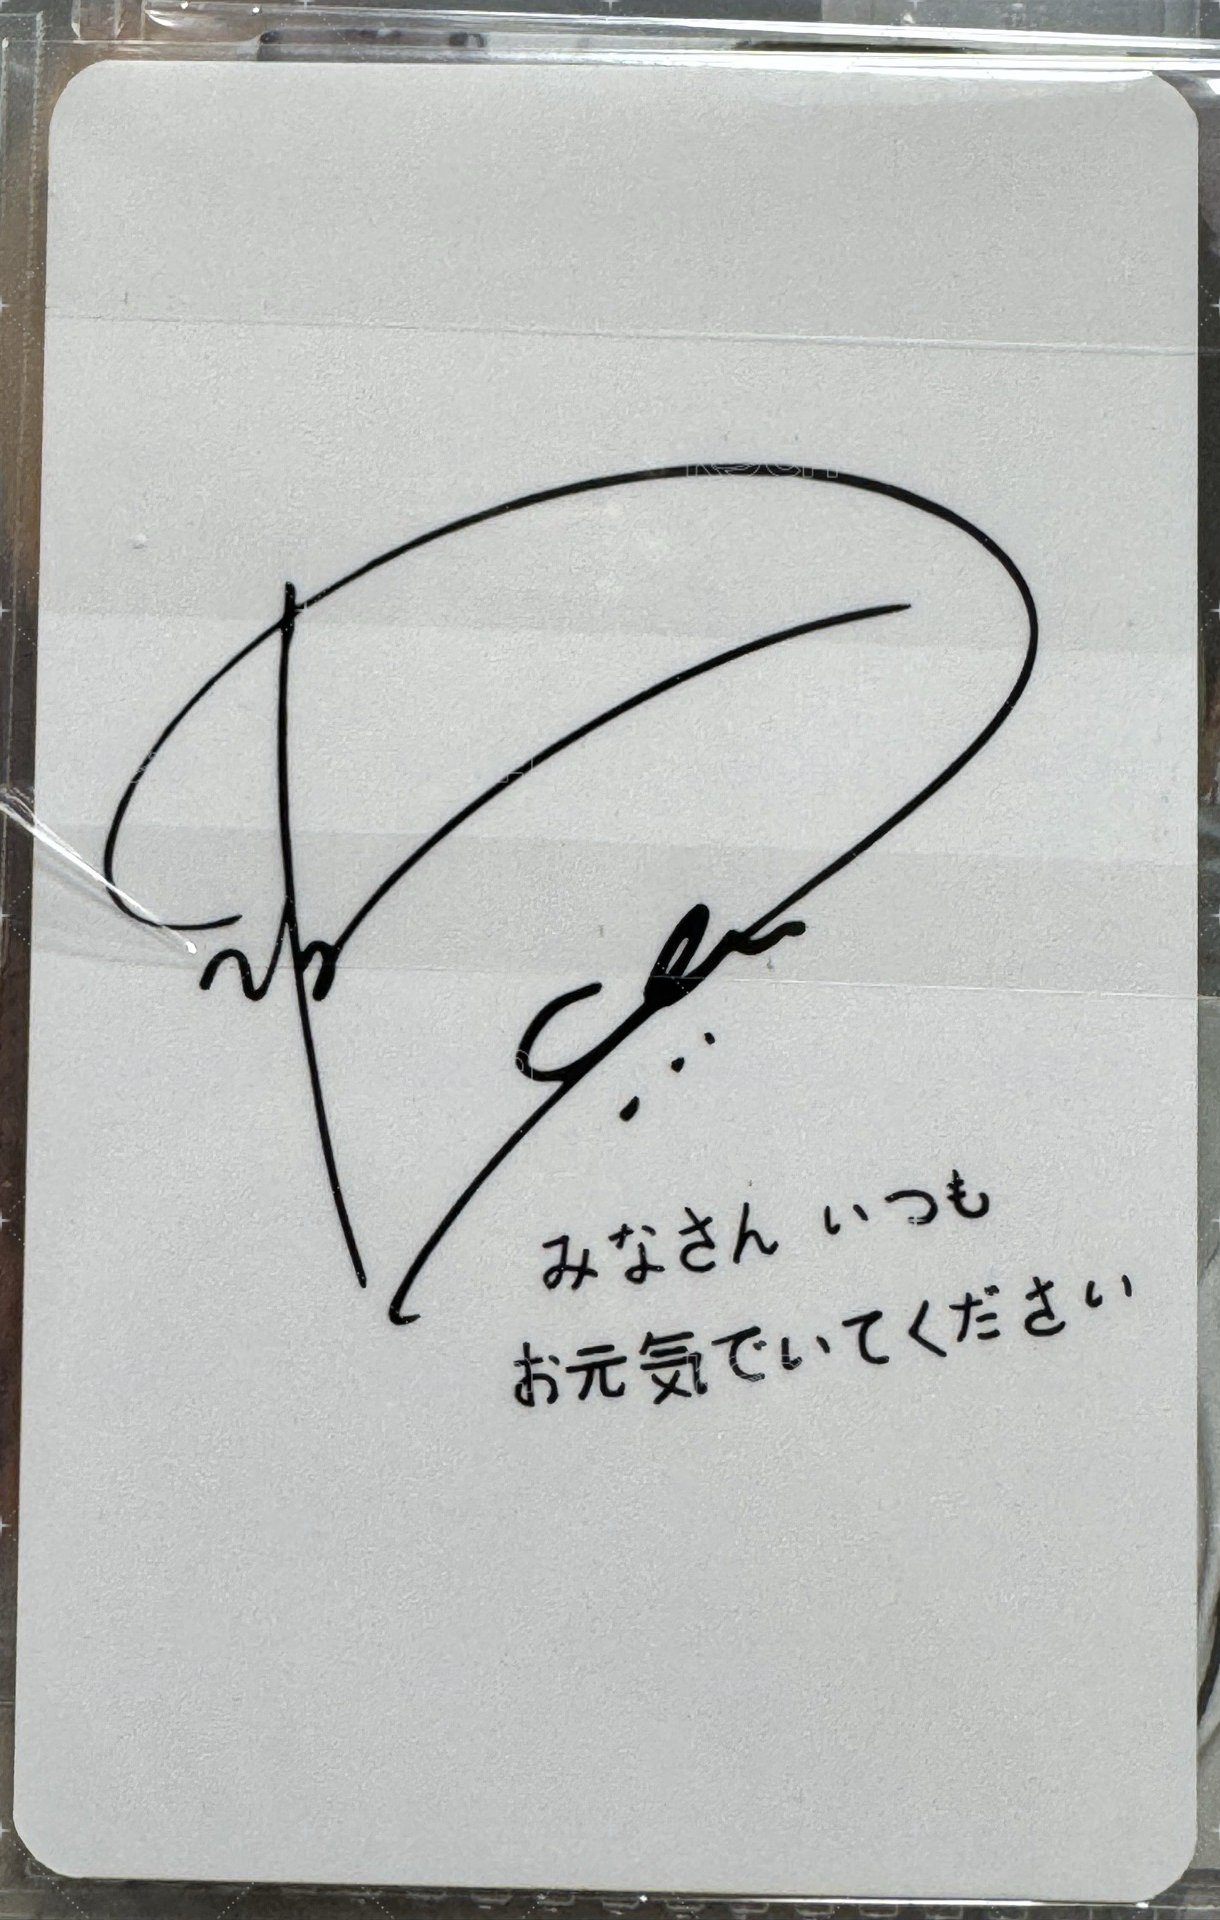 みなさん いつも
お元気でいてください